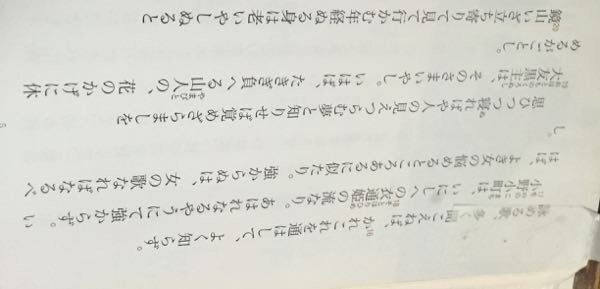 詠める歌、多く聞こえねば、かれこれを通はして、よく知らず。
小野小町は、いにしへの衣通姫の流なり。あはれなるやうにて強からず。い
はば、よき女の悩めるところあるに似たり。強からぬは、女の歌なればなるべ
し。
思ひつつ寝ればや人の見えつらむ夢と知りせば覚めざらましを
大友黒主は、そのさまいやし。いはば、たきぎ負へる山人の、花のかげに休
めるがごとし。
鏡山いざ立ち寄りて見て行かむ年経ぬる身は老いやしぬると